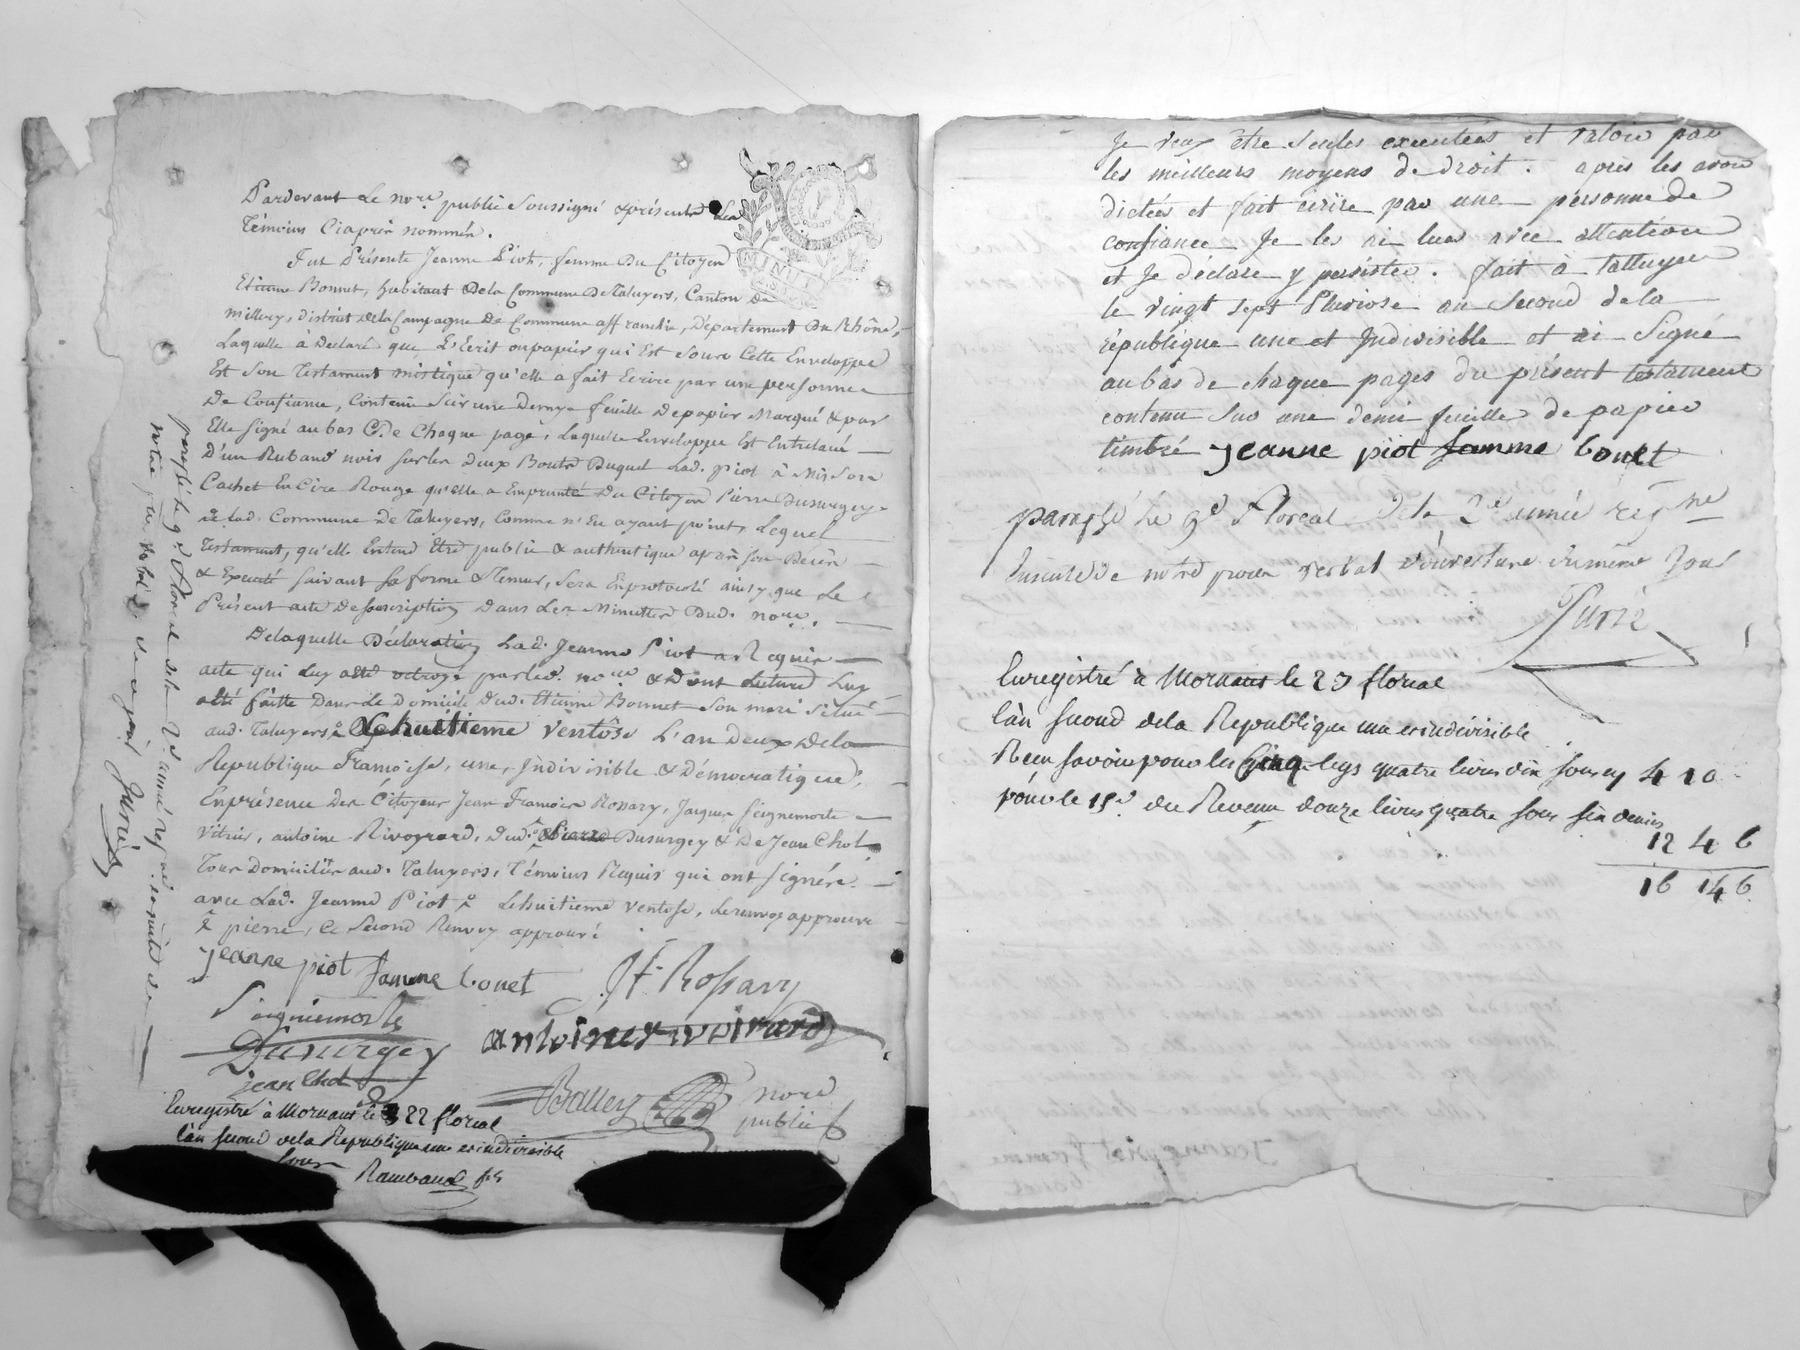 Pardevant Le no.re public Soussigné & présents Les
Témoins Ciaprès nommés.
Fut Présente Jeanne Piot, femme Du Citoyen
Etienne Bonnet, habitant Dela Commune DeTaluyers, Canton de
millery, District dela Campagne De Commune affranchie, Département Du Rhône,
Laquelle à Déclaré que L'Ecrit oupapier qui Est Sous Cette Enveloppe
Est Son Testament mistique qu'elle a fait Ecrire par une personne
De Confiance, Contenu Sur une Demye feuille Depapier Marqué & par
Elle Signé au bas De Chaque page, Laquelle Enveloppe Est Entrelacé
D'un Ruband noir Sur les deux Bouts Duquel Lad. piot à Mis Son
Cachet En Cire Rouge qu'elle a Emprunté Du Citoyen Pierre Dusurgey
de lad. Commune de Taluyers, Comme n'En ayant point, Lequel
Testament, qu'elle Entend Etre public & authentique après Son Décès
& Executé Suivant Sa forme & teneur, Sera Enprotocolé ainsy que Le
Présent acte De Souscription Dans Les Minuttes Dud. no.re.
Delaquelle Déclaration Lad. Jeanne Piot a Requis
acte qui Luy a été octroyé par led. no.re & Dont Lecture Luy
a été faitte Dans Le Domicile Dud. Etienne Bonnet Son mari Situé
aud. Taluyers Le huitieme ventôse L'an Deux Dela
Republique Françoise, une, Jndivisible & Démocratique,
Enprésence Des Citoyens Jean François Rossary, Jaques Seignemorte
Vitrier, antoine Rivoyrard, Dud. Pierre Dusurgey & De Jean Chol
Tous Domiciliés aud. Taluyers, Témoins Requis qui ont Signérs
avec Lad. Jeanne Piot Lehuitieme ventose, Lerenvoy approuvé
pierre, Ce Second Renvoy approuvé
jeanne piot famme bonet
Jf. Rossary
Seigniemorte
antoine rivoirard
Dusurgey
jean Chol
Balley nore
public
Enregistré à Mornant le 22 floreal
l'an second dela Republique une et indivisible
sous
Rambaud
paraphé le 9.e floreal dela 2.e année rep.ne ensuite de
notre procès verbal de ce jour Jurie
Je veux être Seules executées et valoir par
les meilleurs moyens de droit. après les avoir
dictées et fait écrire par une personne de
confiance Je les ai lues avec attention
et Je déclare y persister. fait à talluyers
le vingt Sept Pluviose an Second de la
république une et Jndivisible et ai Signé
au bas de chaque pages du présent testament
contenu Sur une demi feuille de papier
timbré jeanne piot famme bonet
paraphé Le 9.e Floreal dela 2.e année rep.ne
Ensuite de notre procès verbal d'ouverture dumême Jour
Jurie
Enregistré à Mornant le 23 floreal
l'an second dela Republique une et indivisible
Reçu savoir pour les Cinq legs quatre livres dix sous cy 4 10
pour le 15.e du Revenu douze livres quatre sous six deniers
12 4 6
16 14 6